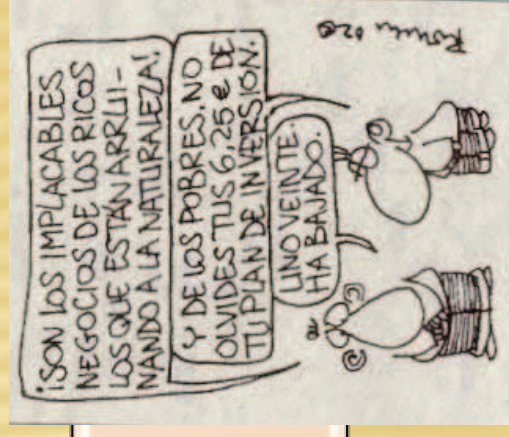 ¡SON LOS IMPLACABLES
NEGOCIOS DE LOS RICOS
LOS QUE ESTÁN ARRUI-
NANDO A LA NATURALEZA!
Y DE LOS POBRES. NO
OLVIDES TUS 6,25 € DE
TU PLAN DE INVERSIÓN.
UNO VEINTE.
HA BAJADO.